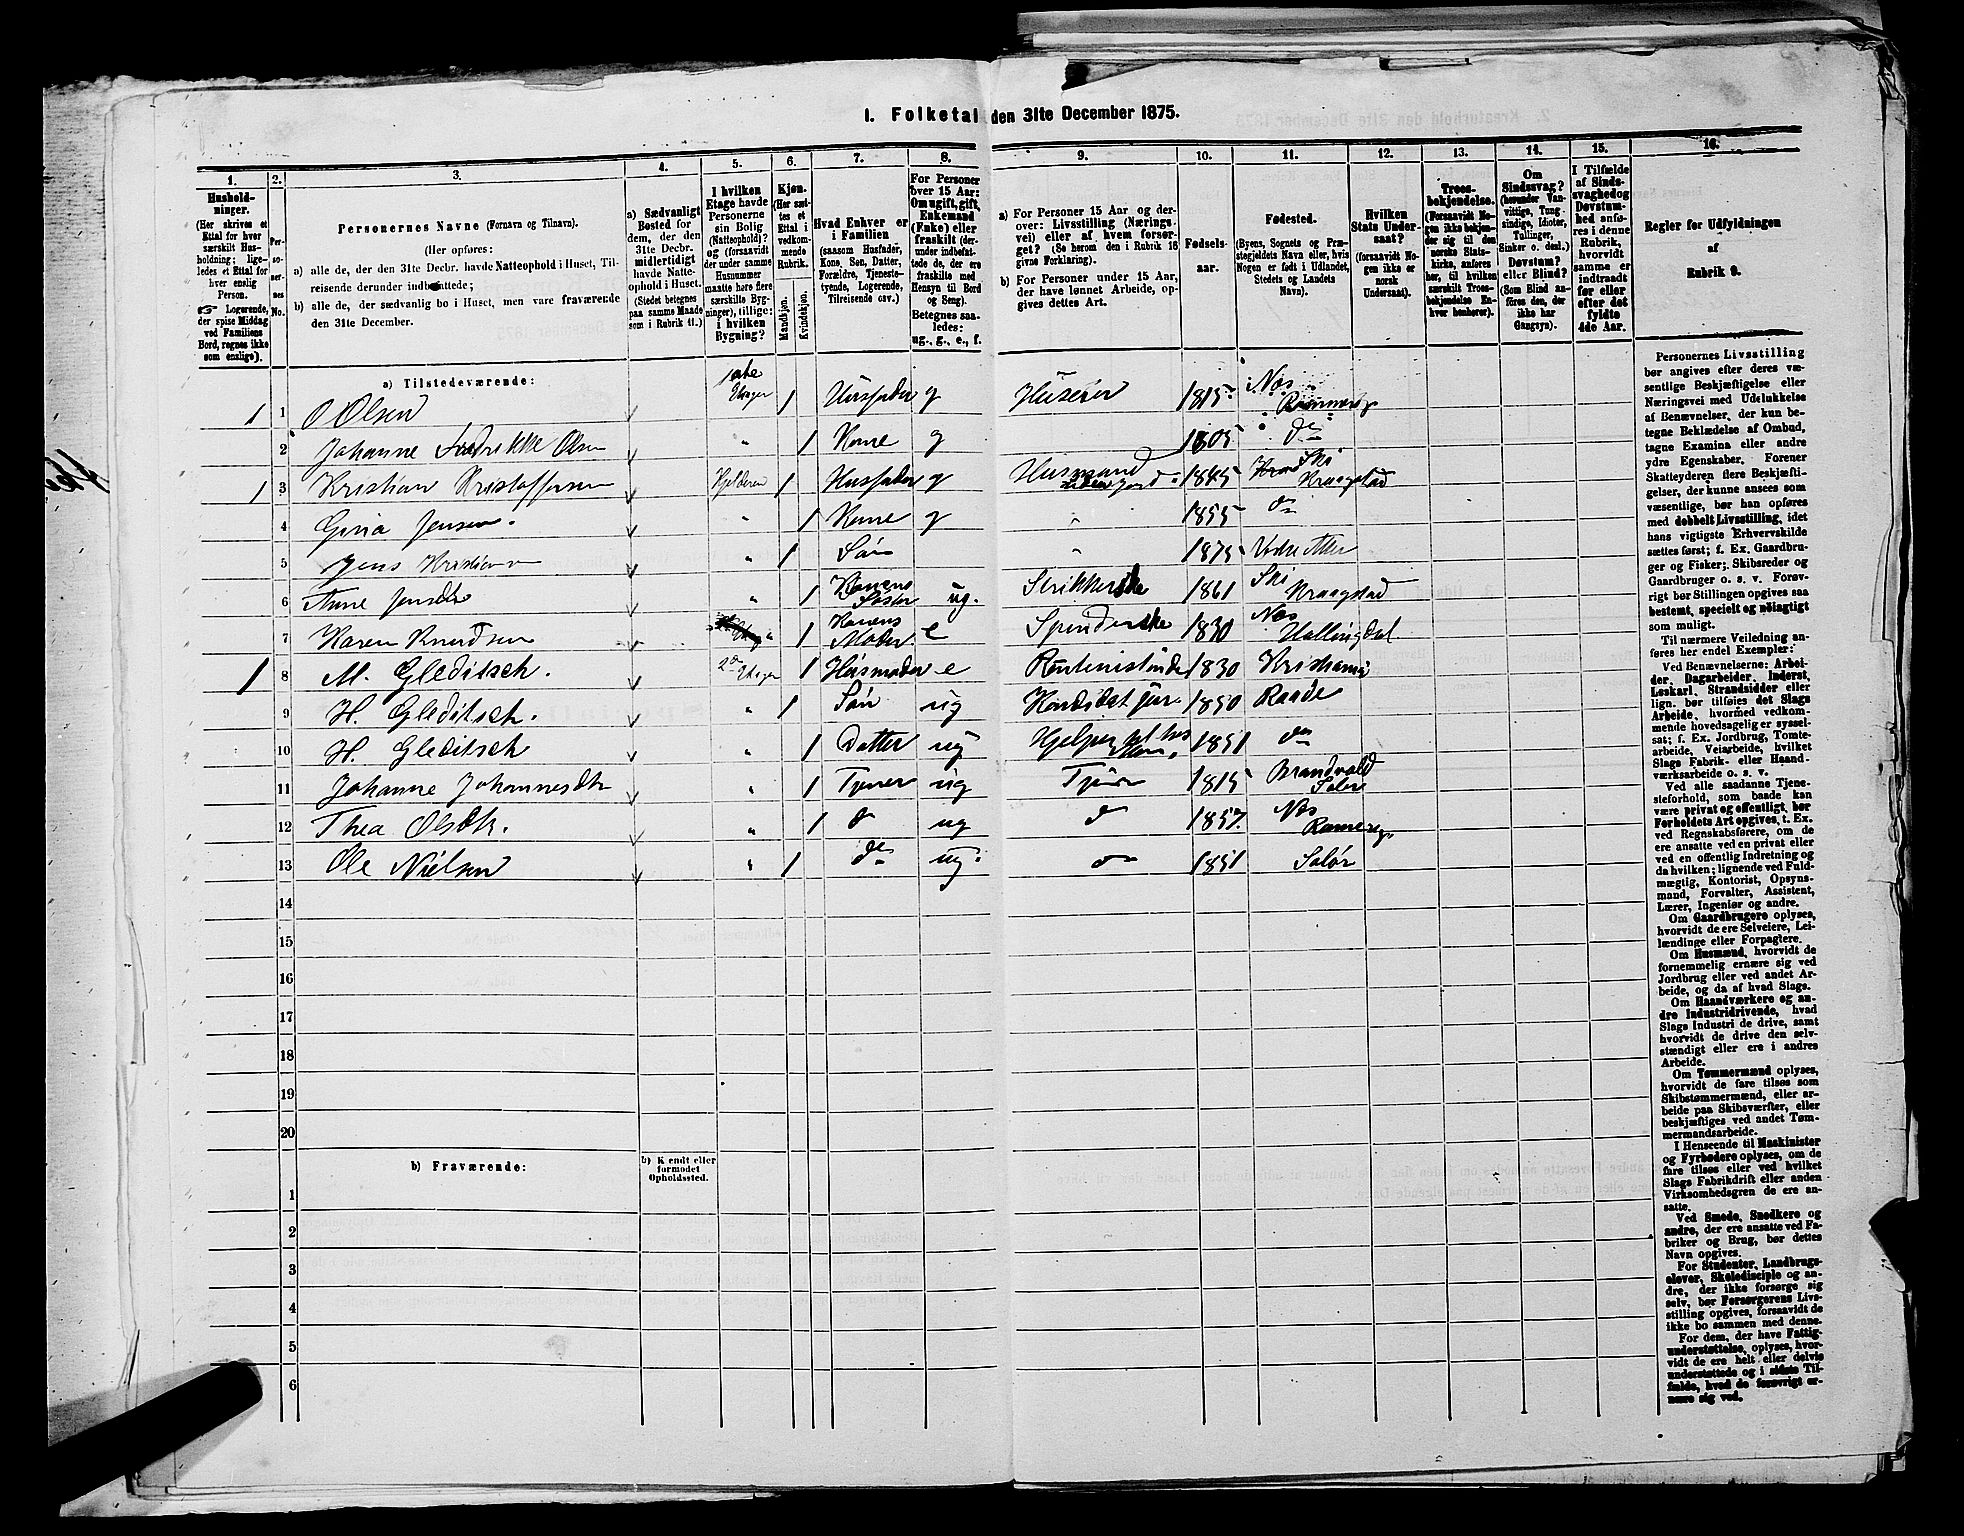 1. Folketal den 31te December 1875.
1. 2. 3. 4. 5. 6. 7. 8. 9. 10. 11. 12. 13. 14. 15. 16.
Husholdninger.
(Her skrives et
Ettal for hver
særskilt Husholdning; ligeledes et Ettal for
hver enslig
Person.
☞ Logerende,
der spise Middag
ved Familiens
Bord, regnes ikke
som enslige).
Personernes No.
Personernes Navne (Fornavn og Tilnavn).
(Her opføres:
a) alle de, der den 31te Decbr. havde Natteophold i Huset, Tilreisende derunder indbefattede;
b) alle de, der sædvanlig bo i Huset, men vare fraværende
den 31te December.
a) Sædvanligt
Bosted for
dem, der den
31te Decbr.
midlertidigt
havde Natteophold i Huset.
(Stedet betegnes
paa samme Maade
som i Rubrik 11.)
I hvilken
Etage havde
Personerne
sin Bolig
(Natteophold)?
og (forsaavidt
der under samme
Husnummer
maatte høre flere
særskilte Bygninger), tillige:
i hvilken
Bygning?
Kjøn.
(Her sættes et
Ettal i
vedkommende
Rubrik.
Mandkjøn.
Kvindekjøn.
Hvad Enhver er
i Familien
(saasom Husfader,
Kone, Søn, Datter,
Forældre, Tjenestetyende, Logerende,
Tilreisende osv.)
For Personer
over 15 Aar:
Om ugift, gift,
Enkemand
(Enke) eller
fraskilt (derunder indbefattede de, der ere
fraskilte med
Hensyn til Bord
og Seng).
Betegnes saaledes:
ug., g., e., f.
a) For Personer 15 Aar og derover: Livsstilling (Næringsvei) eller af hvem forsørget? (Se herom den i Rubrik 16
givne Forklaring).
b) For Personer under 15 Aar,
der have lønnet Arbeide, opgives dettes Art.
Fødselsaar.
Fødested.
(Byens, Sognets og Præstegjeldets Navn eller, hvis
Nogen er født i Udlandet,
Stedets og Landets
Navn).
Hvilken
Stats Undersaat?
(forsaavidt Nogen ikke er
norsk
Undersaat).
Troesbekjendelse.
(Forsaavidt Nogen ikke bekjender sig til den
norske Statskirke, anføres
her, til hvilken
særskilt Troesbekjendelse Enhver henhører).
Om
Sindssvag?
(herunder Vanvittige, Tungsindige, Idioter,
Tullinger,
Sinker o. desl.)
Døvstum?
eller Blind?
(Som Blind anføres den, der
ikke har
Gangsyn).
I Tilfælde
af Sindssvaghed og
Døvstumhed anføres i denne
Rubrik,
hvorvidt
samme er
indtraadt
før eller
efter det
fyldte
4de Aar.
Regler for Udfyldningen
af
Rubrik 9.
a) Tilstedeværende:
1 1 O Olsen 1ste Etager 1 Husfader g Huseier 1815 Næs Romerige
2 Johanne Fredrikke Olsen " 1 Kone g 1805 do
1 3 Kristian Kristoffersen Kjelderen 1 Husfader g Husmand 1845 Ski Kraagstad
4 Gina Jensen. " 1 Kone g " 1855 do
5 Jens Kristian " 1 Søn " 1875
6 Anne Jensdtr " 1 Konens Søster ug. Strikkerske 1861 Ski Kraagstad
7 Karen Knudsen " 1 Konens Moder e Spinderske 1830 Næs Hallingdal
1 8 M. Gleditsch. 2den Etager 1 Husmoder e Rentenistinde 1830 Kristiania
9 H. Gleditsch. " 1 Søn ug Kandidat jur. 1850 Raade
10 H. Gleditsch " 1 Datter ug Hjelper til hos 1851 do
11 Johanne Johannesdtr " 1 Tjener ug Tjener 1815 Brandvold Solør
12 Thea Olsdtr. " 1 do ug do 1857. Næs Romerige
13 Ole Nielsen " 1 do ug. do 1851 Solør
14
15
16
17
18
19
20
b) Fraværende:
b) Kjendt eller
formodet
Opholdssted.
1
2
3
4
5
6
Personernes Livsstilling
bør angives efter deres væsentlige Beskjæftigelse eller
Næringsvei med Udelukkelse
af Benævnelser, der kun betegne Beklædelse af Ombud,
tagne Examina eller andre
ydre Egenskaber. Forener
Skatteyderen flere Beskjæftigelser, der kunne ansees som
væsentlige, bør han opføres
med dobbelt Livsstilling, idet
hans vigtigste Erhvervskilde
sættes først; f. Ex. Gaardbruger og Fisker; Skibsreder og
Gaardbruger o. s. v. Forøvrigt bør Stillingen opgives saa
bestemt, specielt og nøiagtigt
som muligt.
Til nærmere Veiledning anføres her endel Exempler:
Ved Benævnelserne: Arbeider, Dagarbeider, Inderst,
Løskarl, Strandsidder eller
lign. bør tilføies det Slags
Arbeide, hvormed vedkommende hovedsagelig er sysselsat; f. Ex. Jordbrug, Tomtearbeide, Veiarbeide, hvilket
Slags Fabrik- eller Haandværksarbeide o. s. v.
Ved alle saadanne Tjenesteforhold, som baade kan
være privat og offentligt, bør
Forholdets Art opgives, t. Ex.
ved Regnskabsførere, om de
ere ansatte ved en privat eller
ved en offentlig Indretning og
da hvilken; lignende ved Fuldmægtig, Kontorist, Opsynsmand, Forvalter, Assistent,
Lærer, Ingeniør og andre.
Om Gaardbrugere oplyses,
hvorvidt de ere Selveiere, Leilændinge eller Forpagtere.
Om Husmænd, hvorvidt de
fornemmelig ernære sig ved
Jordbrug eller ved andet Arbeide, og da af hvad Slags.
Om Haandværkere og andre Industridrivende, hvad
Slags Industri de drive, samt
hvorvidt de drive den selvstændigt eller ere i andres
Arbeide.
Om Tømmermænd oplyses,
hvorvidt de fare tilsøs som
Skibstømmermænd, eller arbeide paa Skibsværfter, eller
beskjæftiges ved andet Tømmermandsarbeide.
I Henseende til Maskinister
og Fyrbødere oplyses, om de
fare tilsøs eller ved hvilket
Slags Fabrikdrift eller anden
Virksomhedsgren de ere ansatte.
Ved Smede, Snedkere og
andre, der ere ansatte ved Fabriker og Brug, bør dettes
Navn opgives.
For Studenter, Landbrugselever, Skoledisciple og andre, der ikke forsørge sig
selv, bør Forsørgerens Livsstilling opgives, forsaavidt de
ikke bo sammen med denne.
For dem, der have Fattigunderstøttelse, oplyses, hvorvidt de ere helt eller delvis
understøttede og i sidste Tilfælde, hvad de forøvrigt ernære sig ved.